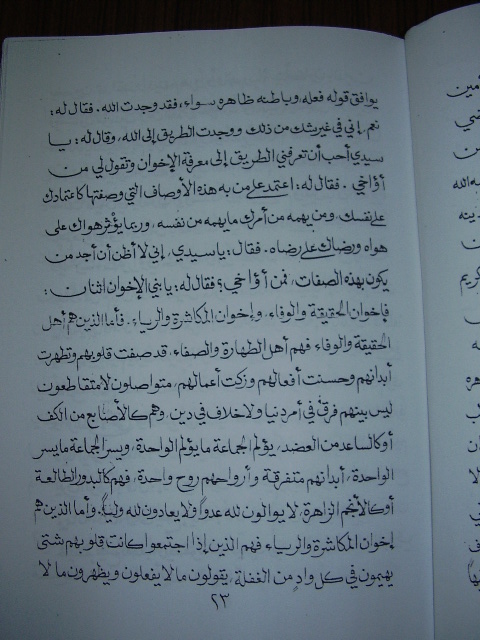 يوافق قوله فعله، وباطنه ظاهره سواء، فقد وجدت الله. فقال له:
نعم، إني في غير شك من ذلك ووجدت الطريق إلى الله، وقال له: يا
سيدي أحب أن تعرفني الطريق إلى معرفة الإخوان وتقول لي من
أؤاخي. فقال له: اعتمد على من به هذه الأوصاف التي وصفتها كاعتمادك
على نفسك، ومن يهمه من أمرك ما يهمه من نفسه، وربما يؤثر هواك على
هواه ورضاك على رضاه. فقال: يا سيدي، إني لا أظن أن أجد من
يكون بهذه الصفات، فمن أؤاخي؟ فقال له: يا بني الإخوان اثنان:
فإخوان الحقيقة والوفاء، وإخوان المكاشرة والرياء. فأما الذين هم أهل
الحقيقة والوفاء فهم أهل الطهارة والصفاء، قد صفت قلوبهم وتطهرت
أبدانهم وحسنت أفعالهم وزكت أعمالهم، متواصلون لا متقاطعون
ليس بينهم فرق في أمر دنيا ولا خلاف في دين. وهم كالأصابع من الكف
أو كالساعد من العضد، يؤلم الجماعة ما يؤلم الواحدة، ويسر الجماعة ما يسر
الواحدة، أبدانهم متفرقة وأرواحهم روح واحدة، فهم كالبدور الطالعة
أو كالأنجم الزاهرة، لا يوالون لله عدواً ولا يعادون لله ولياً. وأما الذين هم
إخوان المكاشرة والرياء فهم الذين إذا اجتمعوا كانت قلوبهم شتى
يهيمون في كل وادٍ من الغفلة، يقولون ما لا يفعلون ويظهرون ما لا
٢٣